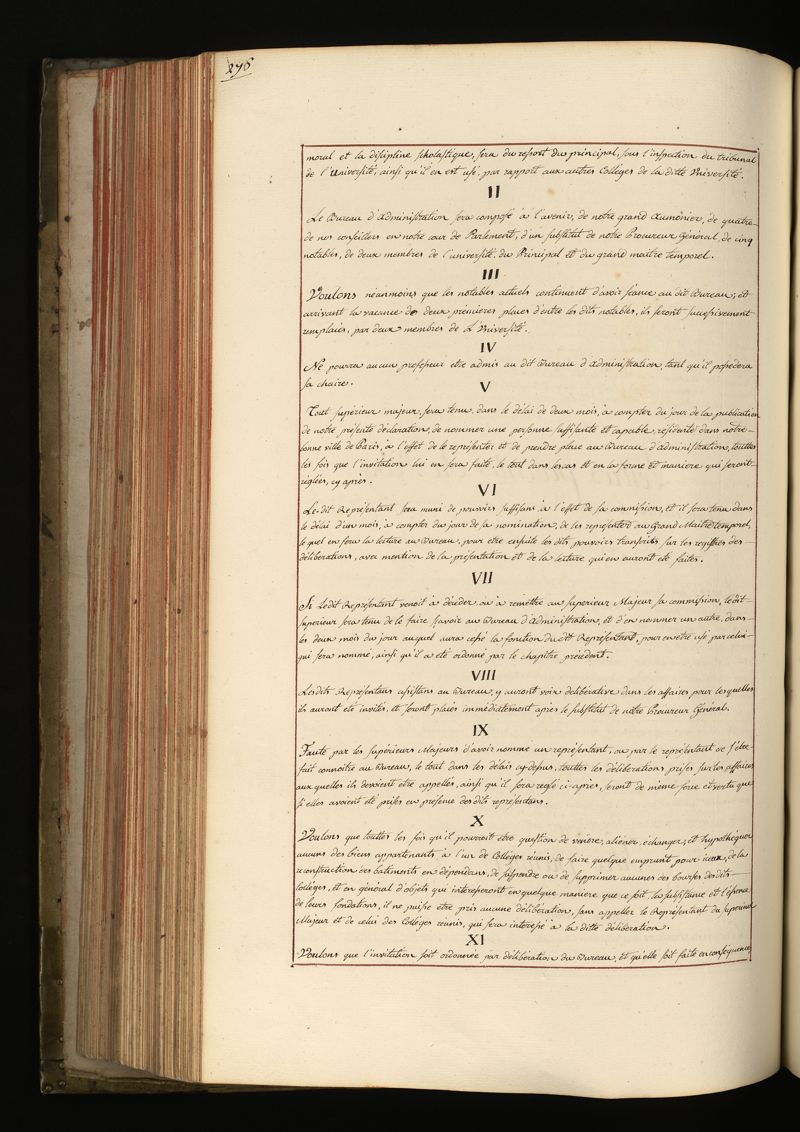 276
moral et la discipline scholastique, sera du ressort du principal, sous l'inspection du tribunal
de l'Université, ainsi qu'il en est usé, par rapport aux autres Colléges de la ditte Université.
II
Le Bureau d'Administration sera composé à l'avenir, de notre grand Aumônier, de quatre
de nos conseillers en notre cour de Parlement, d'un substitut de notre Procureur Général, de cinq
notables, de deux membres de l'université, du Principal et du grand maître temporel.
III
Voulons néanmoins que les notables actuels continuent d'avoir séance au dit Bureau; et
arrivant la vacance des deux prémieres places d'entre les dits notables, ils seront successivement
remplacés, par deux membres de L'Université.
IV
Ne pourra aucun professeur etre admis au dit Bureau d'Administration, tant qu'il possedera
sa chaire.
V
Tout supérieur majeur, sera tenu, dans le délai de deux mois, à compter du jour de la publication
de notre présente déclaration, de nommer une personne suffisante et capable, résidente dans notre
bonne ville de Paris, à l'effet de le représenter et de prendre place au Bureau d'administration, touttes
les fois que l'invitation lui en sera faite, le tout dans les cas et en la forme et maniere qui seront
réglées, cy après.
VI
Le dit Représentant sera muni de pouvoirs suffisans à l'effet de sa commission, et il sera tenu dans
le délai d'un mois, à compter du jour de sa nomination, de les représenter au Grand Maitre temporel,
le quel en fera la lecture au Bureau, pour etre ensuite les dits pouvoirs transcrits sur les registres des
déliberations, avec mention de la présentation et de la lecture qui en auront eté faites.
VII
Si Ledit Représentant venoit à décéder, ou à remettre au superieur Majeur sa commission, ledit
superieur sera tenu de le faire sçavoir au Bureau d'Administration, et d'en nommer un autre, dans
les deux mois du jour auquel aura cessé la fonction du dit Représentant, pour en être usé par celui
qui sera nommé, ainsi qu'il a eté ordonné par le chapitre précédent.
VIII
Lesdits Représentans assistans au Bureau, y auront voix délibérative dans les affaires pour les quelles
ils auront eté invités, et seront placés immédiatement après le substitut de nôtre Procureur Général.
IX
Faute par les supérieurs Majeurs d'avoir nommé un représentant, ou par le représentant de s'être
fait connoître au Bureau, le tout dans les délais cy-dessus, touttes les déliberations prises sur les affaires
aux quelles ils devoient etre appellés, ainsi qu'il sera reglé ci-après, seront de même force et vertu que
si elles avoient eté prises en présence des dits représentans.
X
Voulons que touttes les fois qu'il pourroit etre question de vendre, aliéner, échanger, et hypothéquer
aucuns des biens appartenants à l'un de Colléges réunis, de faire quelque emprunt pour iceux, de la
reconstruction des batiments en dépendans, de suspendre ou de supprimer aucunes des bourses des dits
Colléges, et en général d'objets qui interesseront en quelque maniere que ce soit, la substance et l'essence
de leurs fondations, il ne puisse etre pris aucune délibération, sans appeller le Représentant du superieur
Majeur et de celui des Colléges réunis, qui sera interessé à la ditte déliberation.
XI
Voulons que l'invitation soit ordonnée par délibération du Bureau, et qu'elle soit faite en conséquence